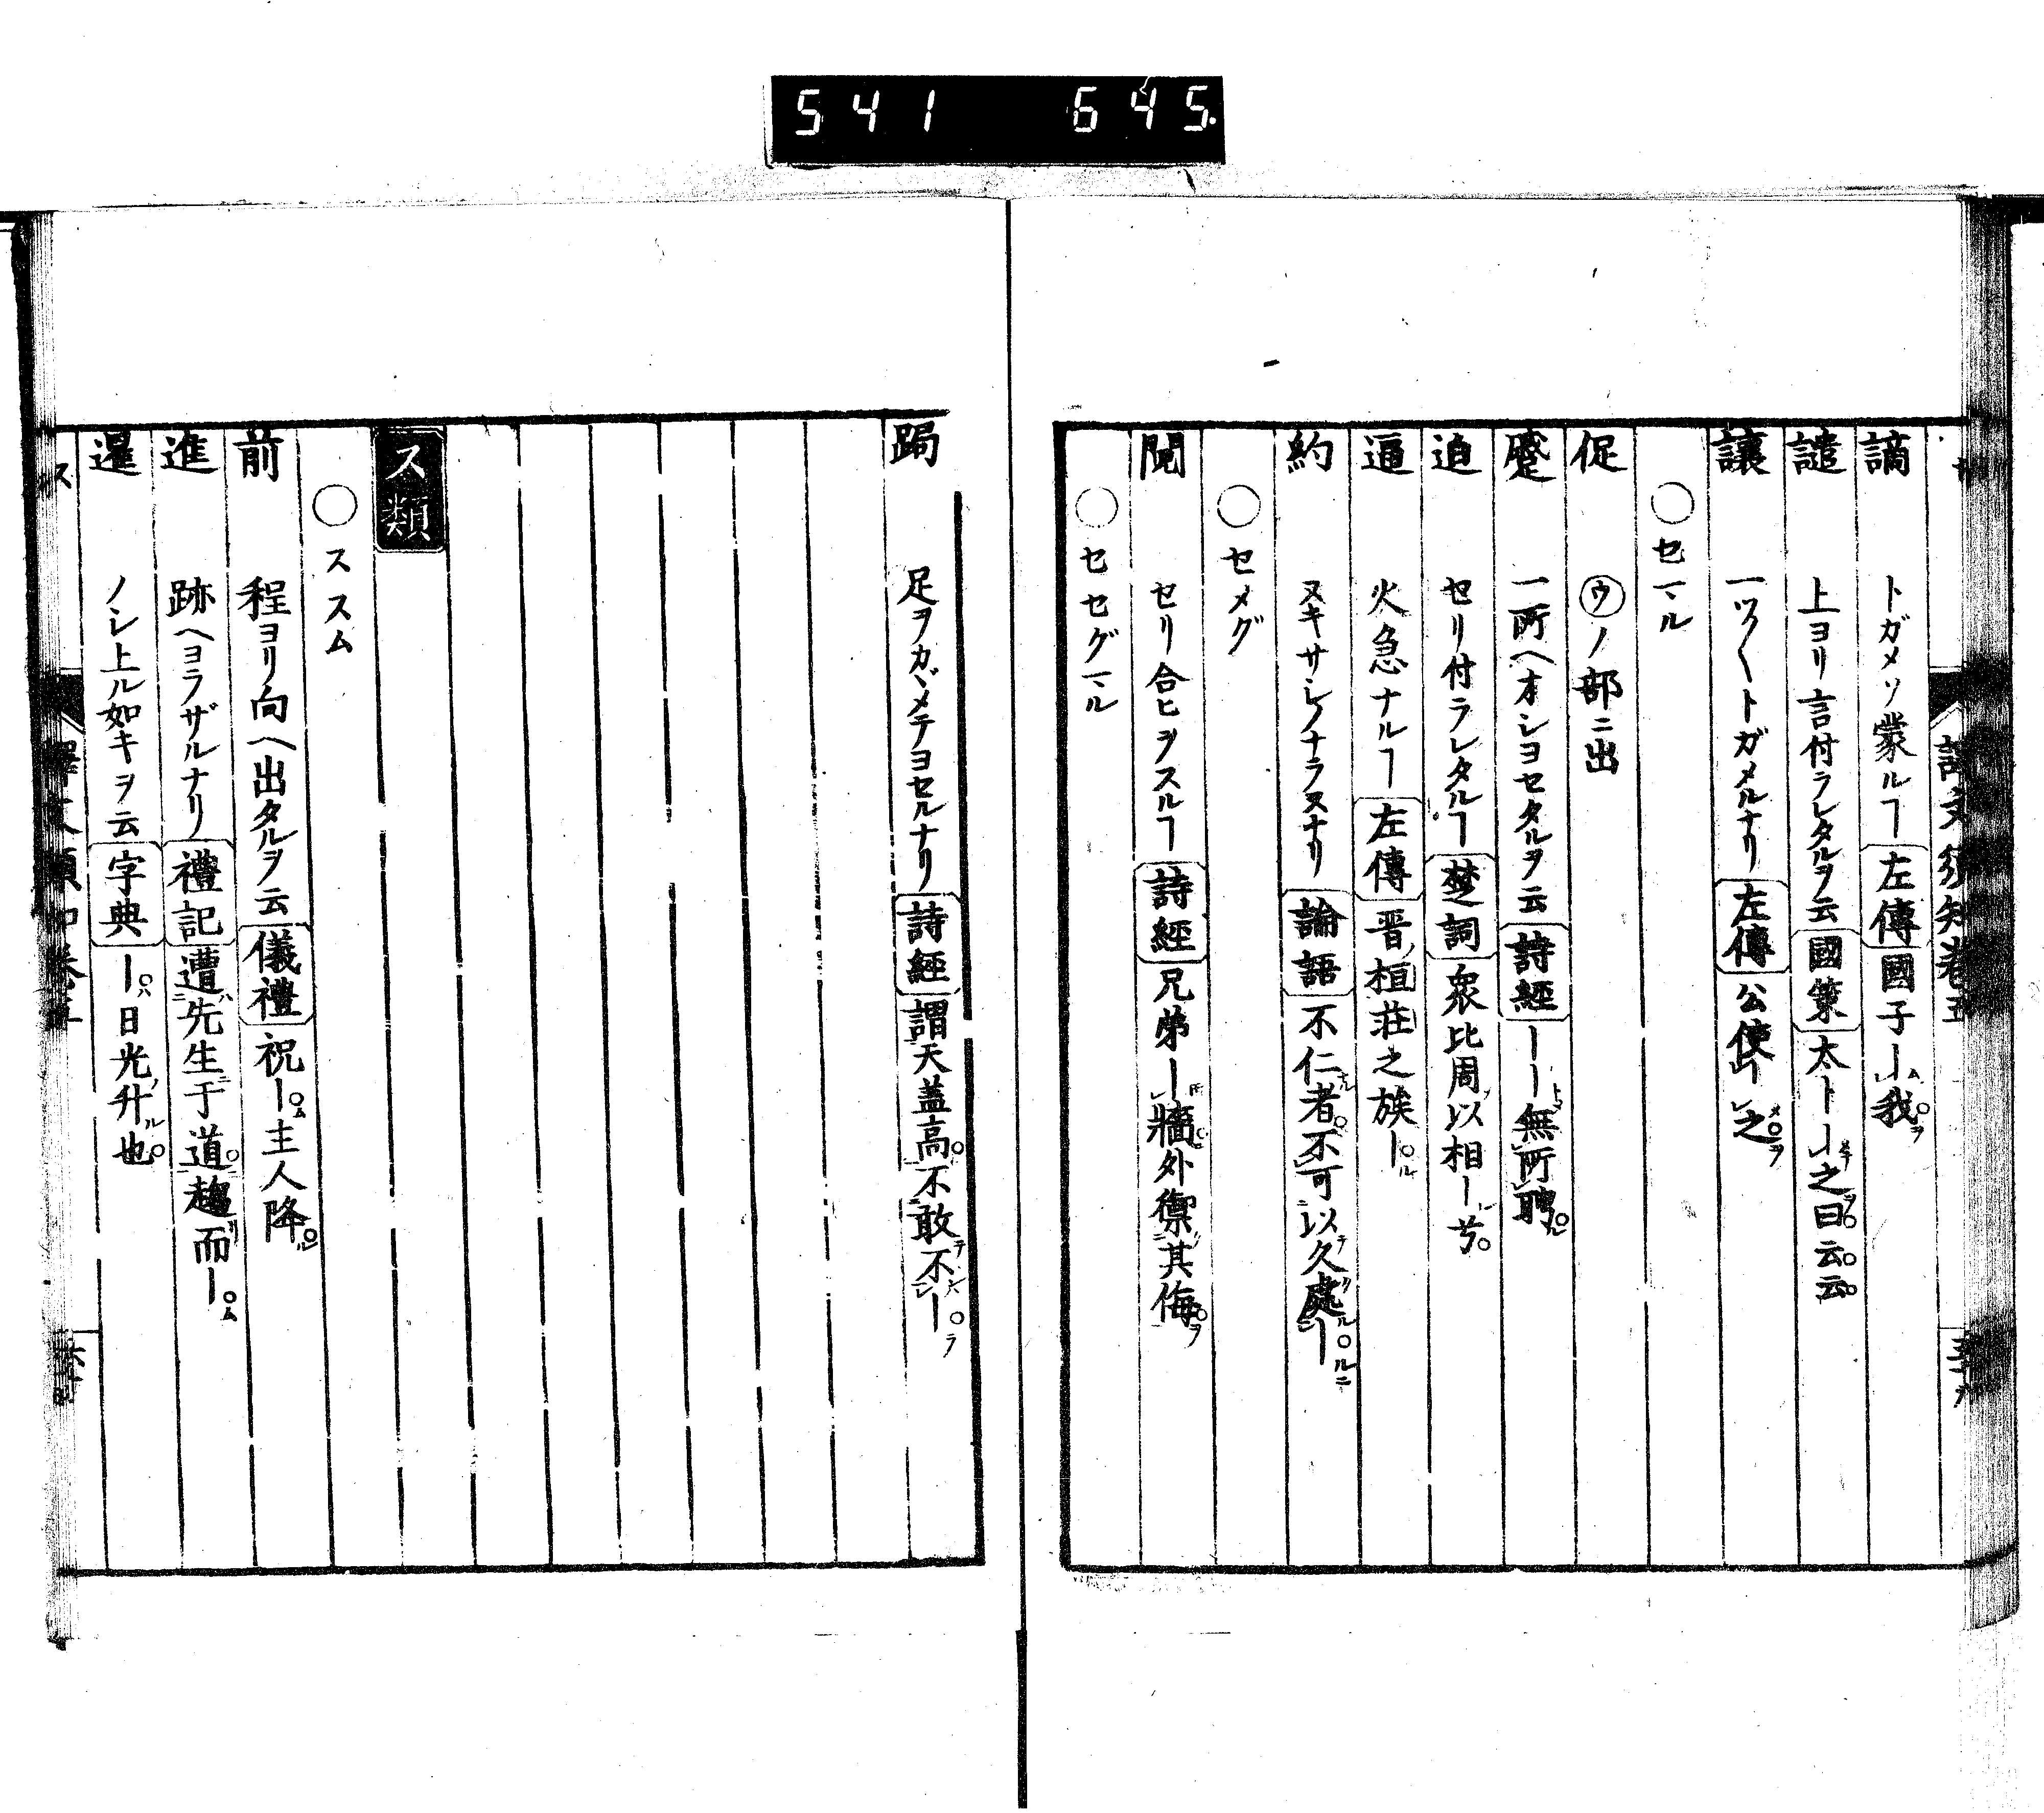 541 645
謫 トガメヲ蒙ルヿ 左傳 國子ー我
譴 上ヨリ言付ラレタルヲ云 國策 太卜ー之曰云云
讓 一ツ〳〵トガメルナリ 左傳 公使ー之
○セマル
促 ウノ部ニ出
蹙 一所ヘオシヨセタルヲ云 詩經 ーー無所聘
迫 セリ付ラレタルヿ 楚詞 衆比周以相ー兮
逼 火急ナルヿ 左傳 晋桓荘之族ー
約 ヌキサシノナラヌナリ 論語 不仁者不可以久處ー
○セメグ
鬩 セリ合ヒヲスルヿ 詩經 兄弟ー牆外禦其侮
○セセグマル
跼 足ヲカヾメテヨセルナリ 詩經 謂天蓋高不敢不ー
ス類
○ススム
前 程ヨリ向ヘ出タルヲ云 儀禮 祝ー主人降
進 跡ヘヨラザルナリ 禮記 遭先生于道趨而ー
暹 ノシ上ル如キヲ云 字典 ー日光升也